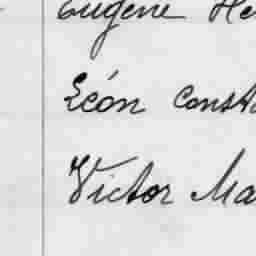 Eugène He
Léon Consta
Victor Ma